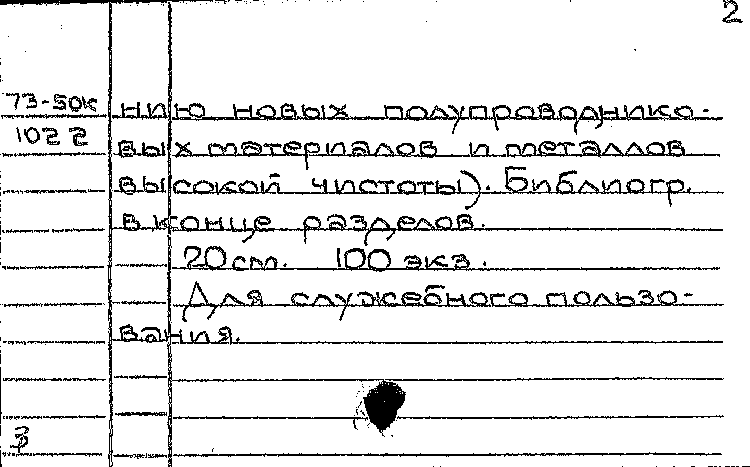 2
73-50к нию новых полупроводнико-
1022 вых материалов и металлов
высокой чистоты). Библиогр.
в конце разделов.
20 см. 100 экз.
Для служебного пользо-
вания.
3